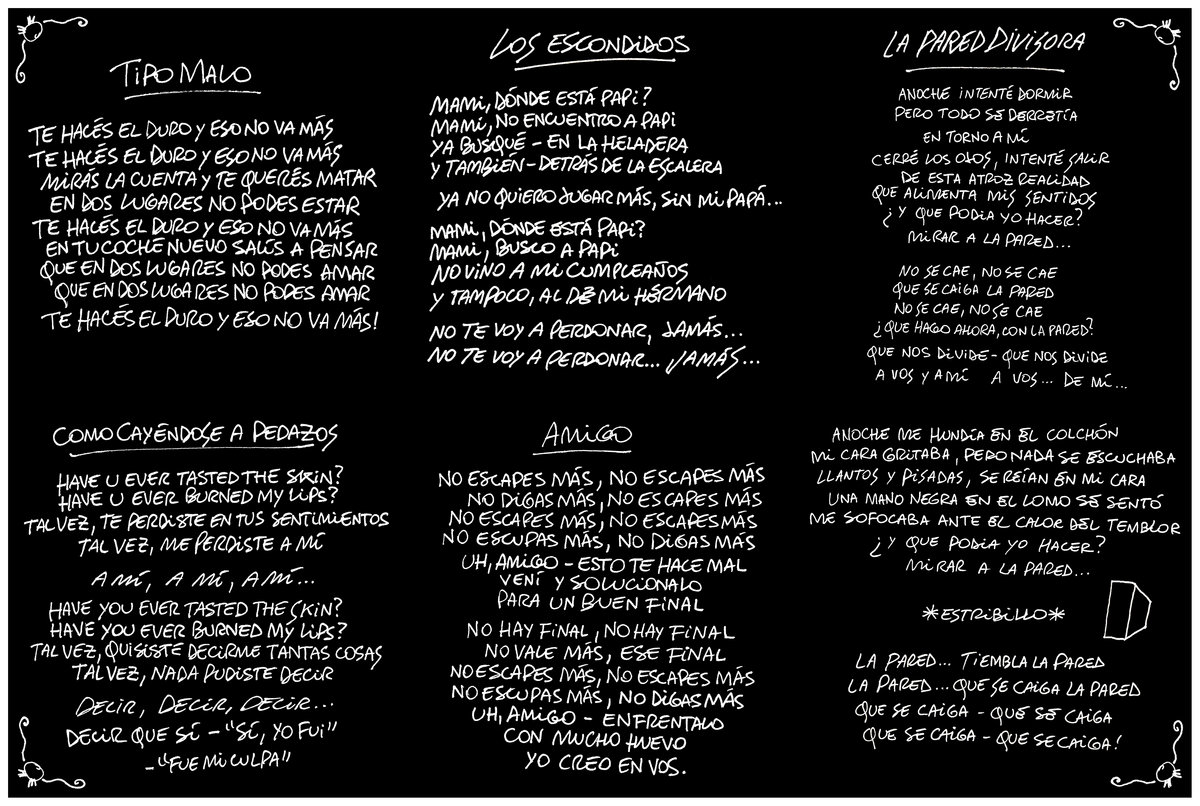 TIPO MALO
TE HACÉS EL DURO Y ESO NO VA MÁS
TE HACÉS EL DURO Y ESO NO VA MÁS
MIRÁS LA CUENTA Y TE QUERÉS MATAR
EN DOS LUGARES NO PODES ESTAR
TE HACÉS EL DURO Y ESO NO VA MÁS
EN TU COCHE NUEVO SALÍS A PENSAR
QUE EN DOS LUGARES NO PODES AMAR
QUE EN DOS LUGARES NO PODES AMAR
TE HACÉS EL DURO Y ESO NO VA MÁS!
LOS ESCONDIDOS
MAMI, DÓNDE ESTÁ PAPI?
MAMI, NO ENCUENTRO A PAPI
YA BUSQUÉ - EN LA HELADERA
Y TAMBIÉN - DETRÁS DE LA ESCALERA
YA NO QUIERO JUGAR MÁS, SIN MI PAPÁ...
MAMI, DÓNDE ESTÁ PAPI?
MAMI, BUSCO A PAPI
NO VINO A MI CUMPLEAÑOS
Y TAMPOCO, AL DE MI HÉRMANO
NO TE VOY A PERDONAR, JAMÁS...
NO TE VOY A PERDONAR... JAMÁS...
LA PARED DIVISORA
ANOCHE INTENTÉ DORMIR
PERO TODO SE DERRETÍA
EN TORNO A MÍ
CERRÉ LOS OJOS, INTENTÉ SALIR
DE ESTA ATROZ REALIDAD
QUE ALIMENTA MIS SENTIDOS
¿Y QUE PODIA YO HACER?
MIRAR A LA PARED...
NO SE CAE, NO SE CAE
QUE SE CAIGA LA PARED
NO SE CAE, NO SE CAE
¿QUE HAGO AHORA, CON LA PARED?
QUE NOS DIVIDE - QUE NOS DIVIDE
A VOS Y A MÍ A VOS... DE MÍ...
COMO CAYÉNDOSE A PEDAZOS
HAVE U EVER TASTED THE SKIN?
HAVE U EVER BURNED MY LIPS?
TAL VEZ, TE PERDISTE EN TUS SENTIMIENTOS
TAL VEZ, ME PERDISTE A MÍ
A MÍ, A MÍ, A MÍ...
HAVE YOU EVER TASTED THE SKIN?
HAVE YOU EVER BURNED MY LIPS?
TAL VEZ, QUISISTE DECIRME TANTAS COSAS
TAL VEZ, NADA PUDISTE DECIR
DECIR, DECIR, DECIR...
DECIR QUE SÍ - "SÍ, YO FUI"
- "FUE MI CULPA"
AMIGO
NO ESCAPES MÁS, NO ESCAPES MÁS
NO DIGAS MÁS, NO ESCAPES MÁS
NO ESCAPES MÁS, NO ESCAPES MÁS
NO ESCUPAS MÁS, NO DIGAS MÁS
UH, AMIGO - ESTO TE HACE MAL
VENÍ Y SOLUCIONALO
PARA UN BUEN FINAL
NO HAY FINAL, NO HAY FINAL
NO VALE MÁS, ESE FINAL
NO ESCAPES MÁS, NO ESCAPES MÁS
NO ESCUPAS MÁS, NO DIGAS MÁS
UH, AMIGO - ENFRENTALO
CON MUCHO HUEVO
YO CREO EN VOS.
ANOCHE ME HUNDÍA EN EL COLCHÓN
MI CARA GRITABA, PERO NADA SE ESCUCHABA
LLANTOS Y PISADAS, SE REÍAN EN MI CARA
UNA MANO NEGRA EN EL LOMO SE SENTÓ
ME SOFOCABA ANTE EL CALOR DEL TEMBLOR
¿Y QUE PODIA YO HACER?
MIRAR A LA PARED...
*ESTRIBILLO*
LA PARED... TIEMBLA LA PARED
LA PARED... QUE SE CAIGA LA PARED
QUE SE CAIGA - QUE SE CAIGA
QUE SE CAIGA - QUE SE CAIGA!